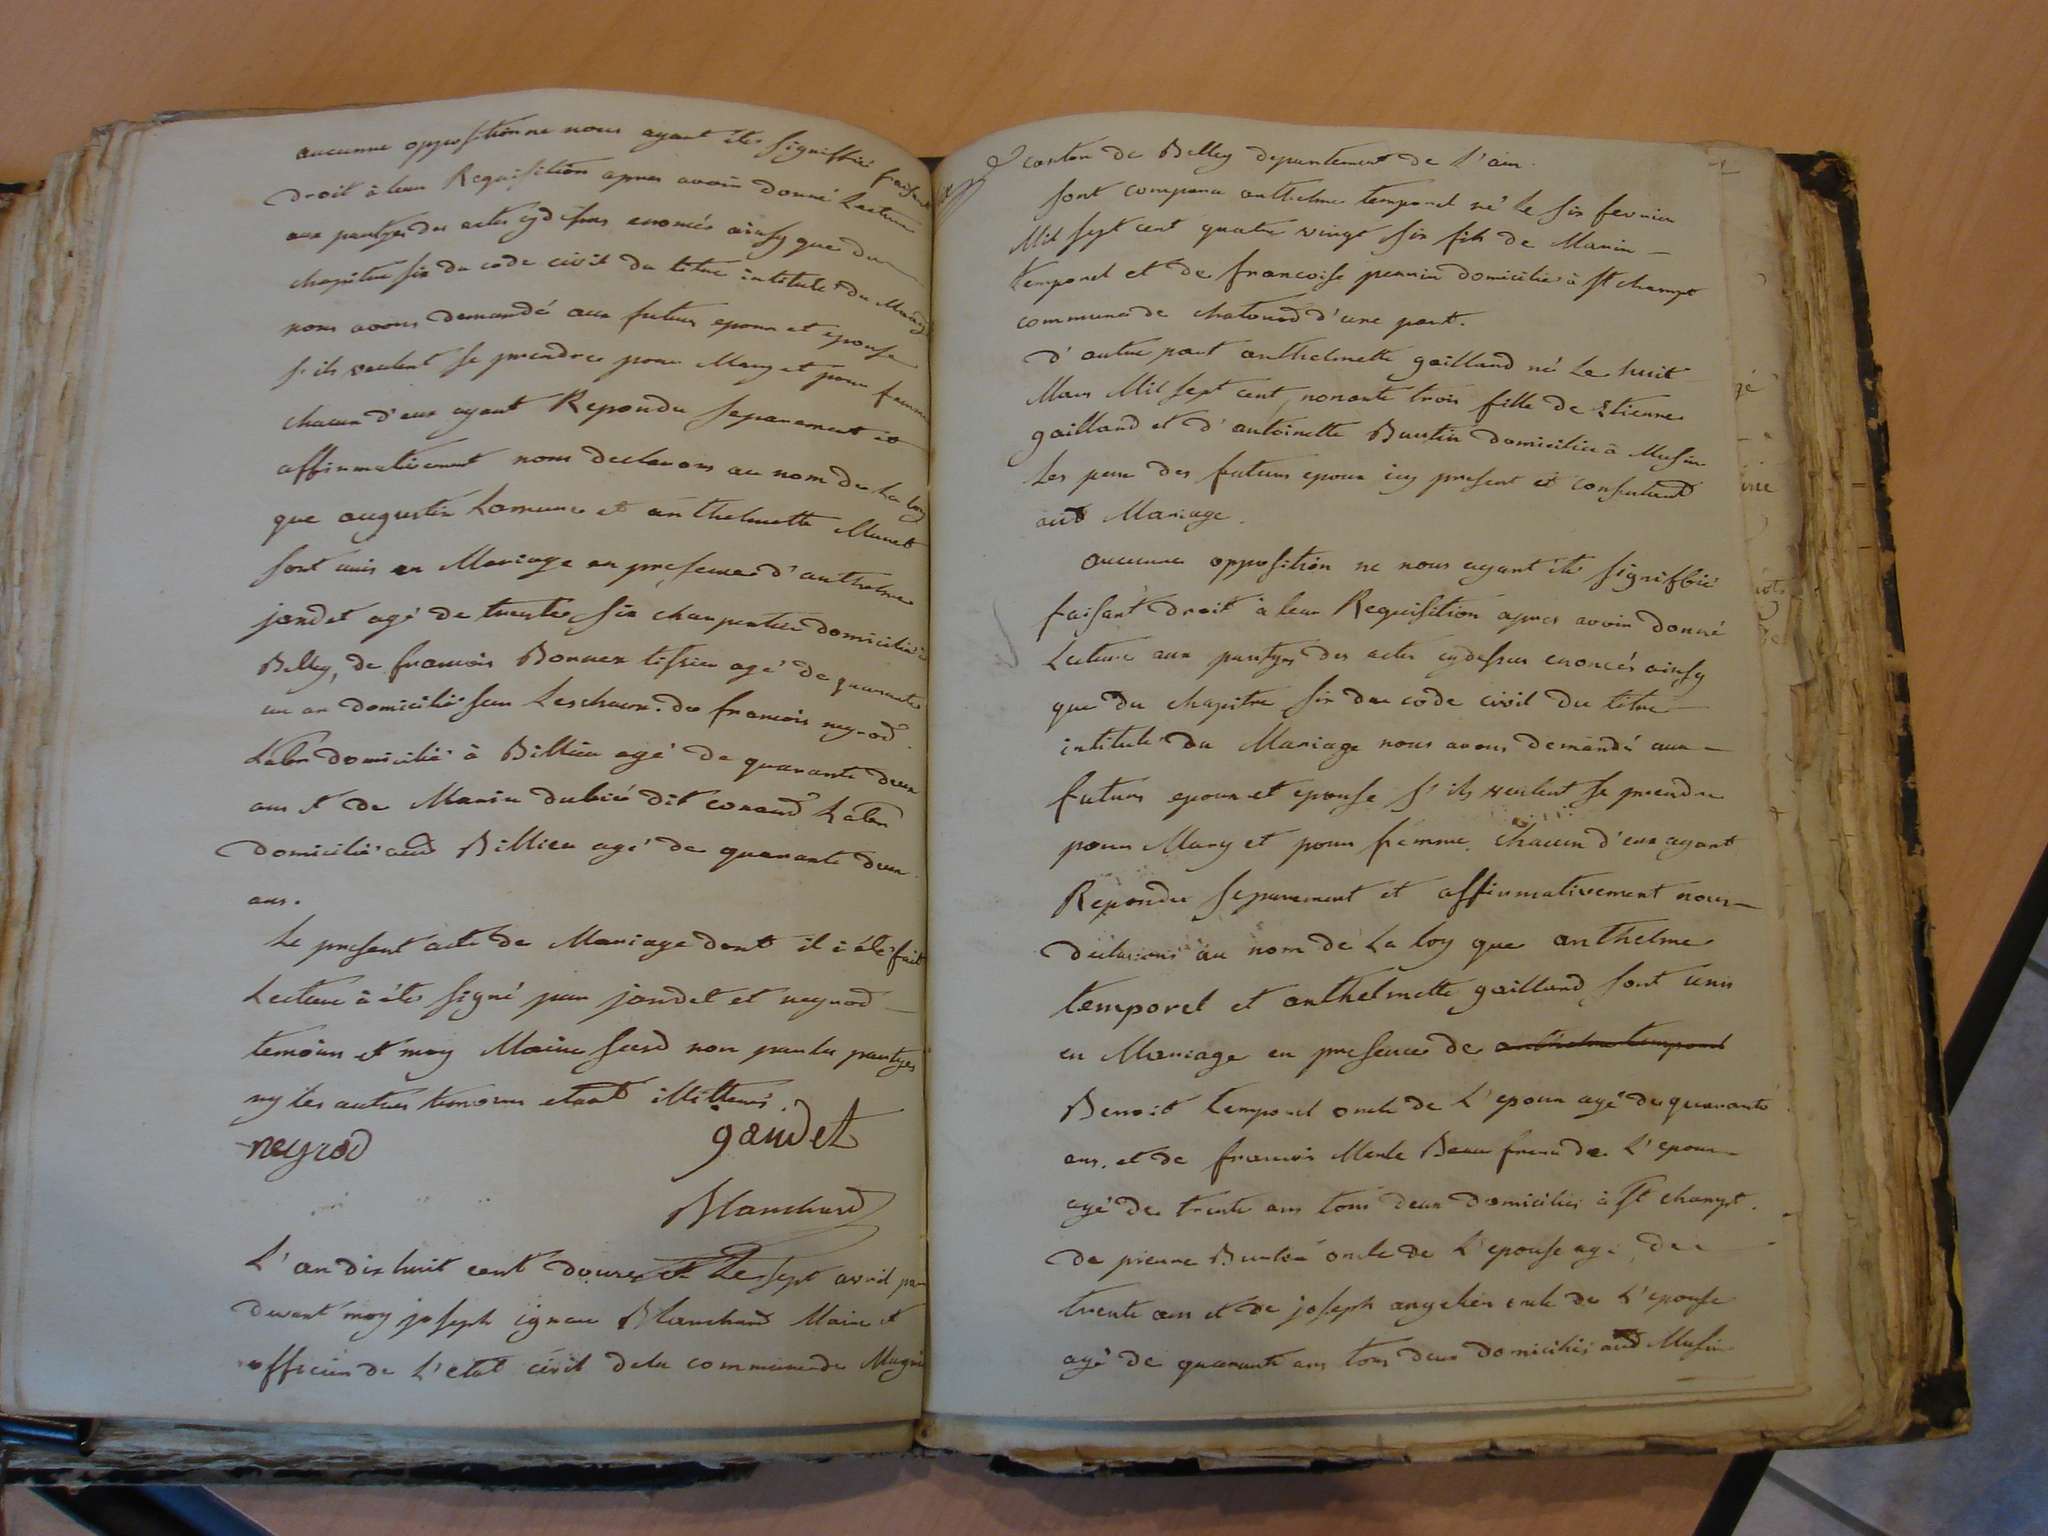 aucunne opposition ne nous ayant étés signiffiée faisant
droit à leur Requisition apres avoir donné Lecture
aux partyes des actes cydesus enoncés ainsy que du
chapitre six du code civil du titre intitulé du Mariage
nous avons demandé aux futurs epoux et epouse
s'ils veulent se prendre pour Mary et pour femme
chacun d'eux ayant Repondu separement et
affirmativement nous declarons au nom de La loy
que augustin et anthelmette
sont unis en Mariage en presence d'anthelme
jandet agé de trente six charpentier domicilié à
Belley, de francois Bonnex tissier agé de quarante
un an domicilié sur Leschaux. de francois neyrod
Labr domicilié à Billieu agé de quarante deux
ans et de Marin dubié dit Labr
domicilié aud Billieu agé de quarante deux
ans.
Le present acte de Mariage dont il à été fait
Lecture à étés signé par jandet et neyrod
temoins et moy Maire susd non par les partyes
ny les autres temoins etant illitterés.
neyrod gaudet
Blanchard
L'an dix huit cent douze et Le sept avril par
devant moy joseph ignace Blanchard Maire et
officier de L'etat civil de la commune de Magnieu
canton de Belley departement de L'ain.
sont comparu anthelme temporel né Le six fevrier
Mil sept cent quatre vingt six fils de Marin
temporel et de francoise perrin domiciliés à St champt
commune de chatonod d'une part.
d'autre part anthelmette gailland né Le huit
Mars Mil sept cent nonante trois fille de Etienne
gailland et d'antoinette Burtin domiciliée à Musin
Les pere des futurs epoux icy present et consentant
aud Mariage.
aucunne opposition ne nous ayant été signiffiée
faisant droit à leur Requisition apres avoir donné
Lecture aux partyes des actes cydessus enoncés ainsy
que du chapitre six du code civil du titre
intitulé du Mariage nous avons demandé aux
futurs epoux et epouse s'ils veulent se prendre
pour Mary et pour femme. chacun d'eux ayant
Repondu separement et affirmativement nous
declarons au nom de La loy que anthelme
temporel et anthelmette gailland sont unis
en Mariage en presence de anthelme temporel
Benoit temporel oncle de L'epoux agé de quarante
ans. et de francois Merle Beau frere de L'epoux
agé de trente ans tous deux domiciliés à St champt.
de pierre Burtin oncle de L'epouse agé de
trente ans et de joseph angelier oncle de L'epouse
agé de quarante ans tous deux domiciliés aud Musin